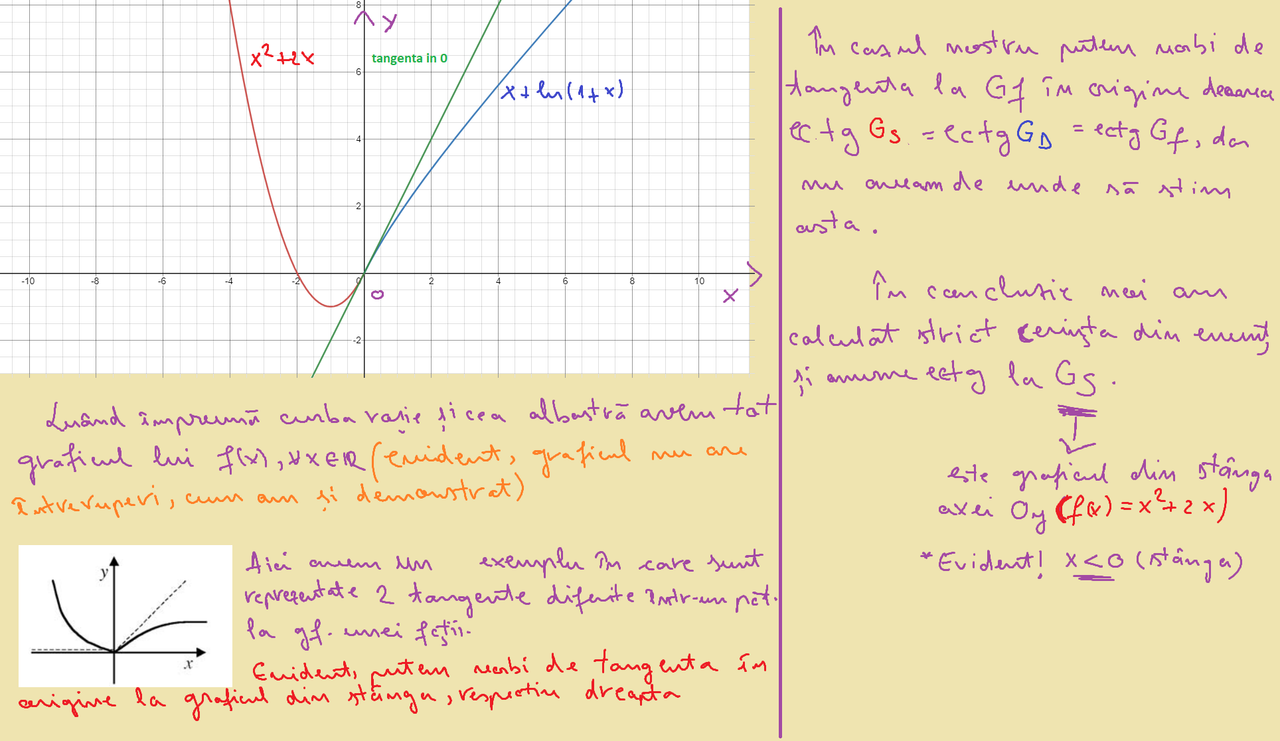 y
8
x²+2x
tangenta in 0
6
x+ln(1+x)
4
2
-10 -8 -6 -4 -2 0 2 4 6 8 10
0
x
-2
Luând împreună curba roșie și cea albastră avem tot
graficul lui f(x), ∀x∈ℝ (evident, graficul nu are
întreruperi, cum am și demonstrat)
y
x
Aici avem un exemplu în care sunt
reprezentate 2 tangente diferite într-un pct.
la gf. unei fcții.
Evident, putem vorbi de tangenta în
origine la graficul din stânga, respectiv dreapta
În cazul nostru putem vorbi de
tangenta la Gf în origine deoarece
ec tg Gs = ec tg GD = ec tg Gf, dar
nu aveam de unde să știm
asta.
În concluzie noi am
calculat strict cerința din enunț,
și anume ec tg la Gs.
este graficul din stânga
axei Oy (f(x) = x²+2x)
*Evident! x<0 (stânga)